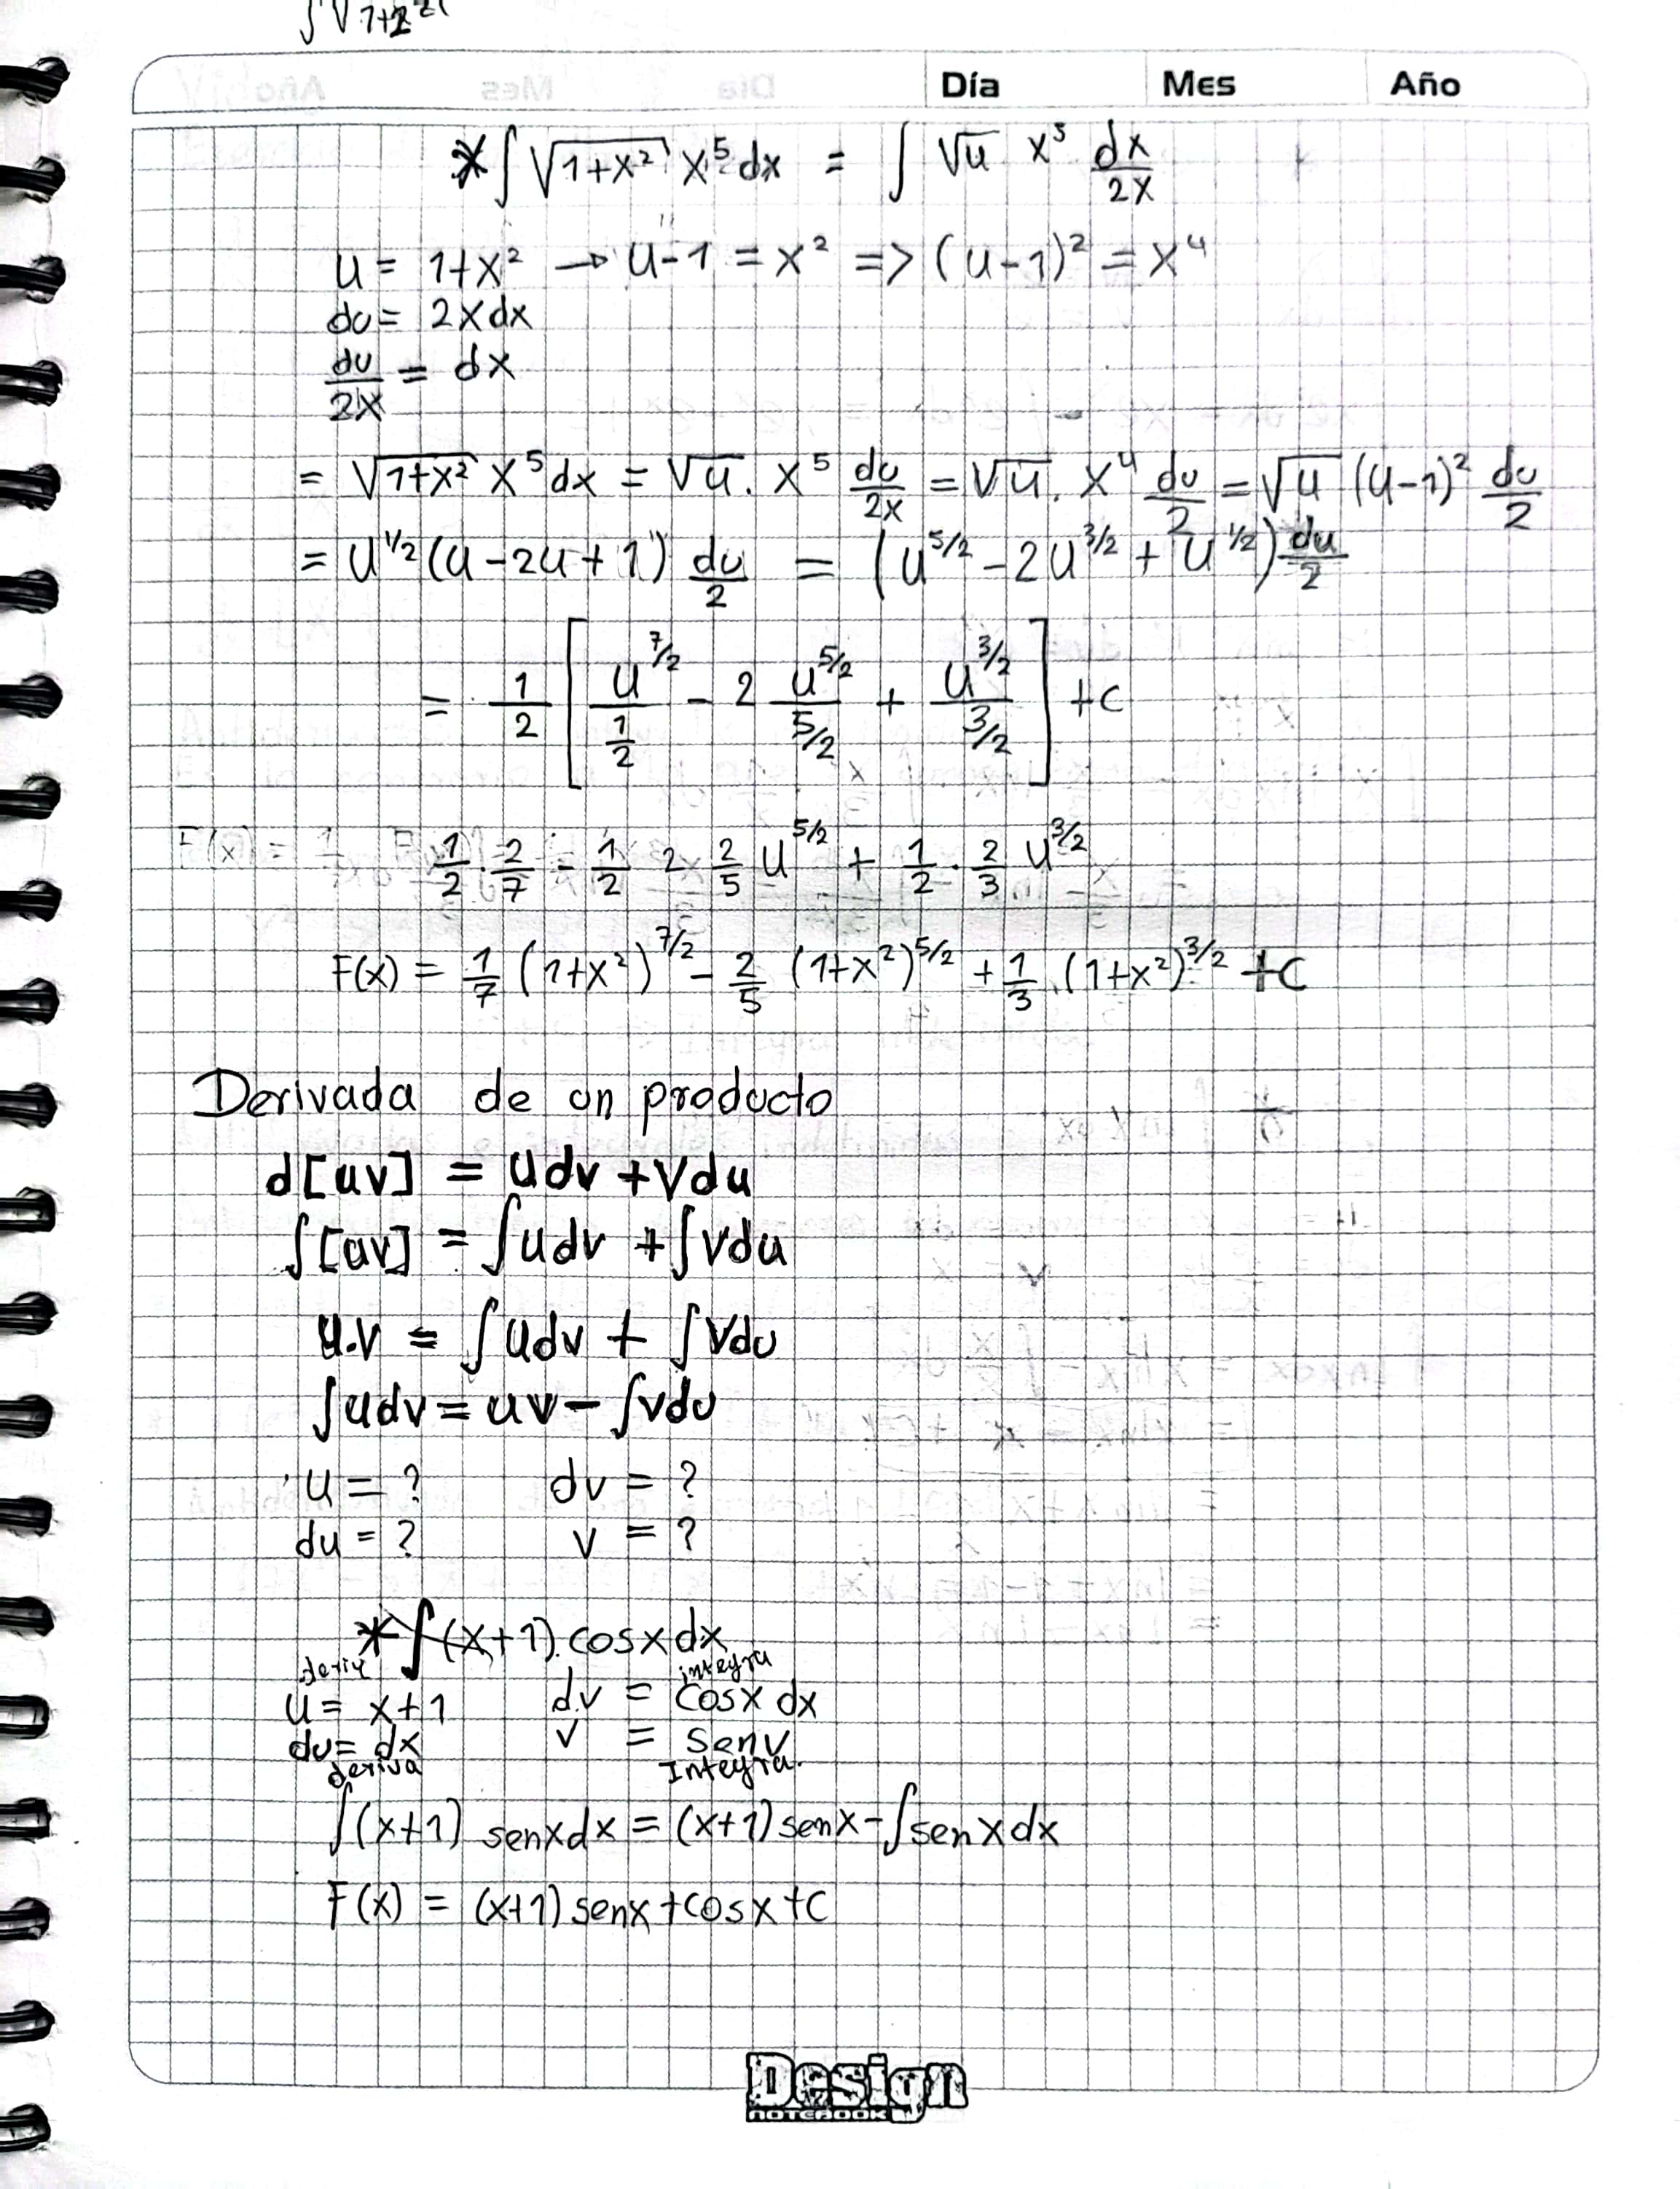 ∫√1+2
Día Mes Año
* ∫ √1+x² x⁵ dx = ∫ √u x⁵ dx/2x
u = 1+x² → u-1 = x² => (u-1)² = x⁴
du = 2x dx
du/2x = dx
= √1+x² x⁵ dx = √u . x⁵ du/2x = √u . x⁴ du/2 = √u (u-1)² du/2
= u^1/2 (u-2u+1) du/2 = (u^5/2 - 2u^3/2 + u^1/2) du/2
= 1/2 [ u^7/2 / 1/2 - 2 u^5/2 / 5/2 + u^3/2 / 3/2 ] + c
1/2 . 2/7 - 1/2 2 2/5 u^5/2 + 1/2 . 2/3 u^3/2
F(x) = 1/7 (1+x²)^7/2 - 2/5 (1+x²)^5/2 + 1/3 . (1+x²)^3/2 + c
Derivada de un producto
d[uv] = udv + vdu
∫[uv] = ∫udv + ∫vdu
u.v = ∫udv + ∫vdu
∫udv = uv - ∫vdu
u = ? dv = ?
du = ? v = ?
* ∫(x+1).cosx dx
deriv integra
u = x+1 dv = cosx dx
du = dx v = senv
deriva Integra.
∫(x+1) senx dx = (x+1) senx - ∫senx dx
F(x) = (x+1) senx + cosx + c
Design
NOTEBOOK